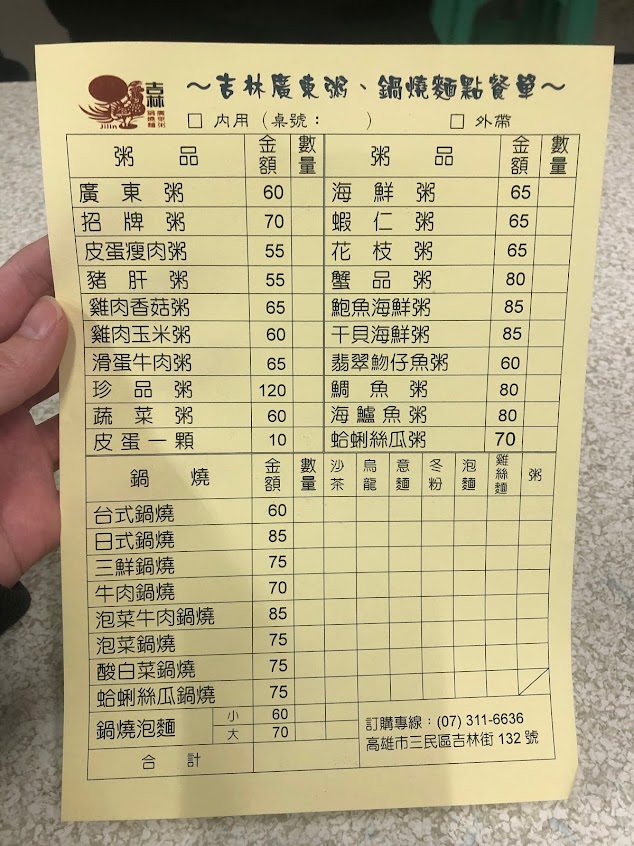 吉林
廣東粥
鍋燒麵
Jilin
～吉林廣東粥、鍋燒麵點餐單～
□ 內用（桌號： ） □ 外帶
粥品 金額 數量 粥品 金額 數量
廣東粥 60 海鮮粥 65
招牌粥 70 蝦仁粥 65
皮蛋瘦肉粥 55 花枝粥 65
豬肝粥 55 蟹品粥 80
雞肉香菇粥 65 鮑魚海鮮粥 85
雞肉玉米粥 60 干貝海鮮粥 85
滑蛋牛肉粥 65 翡翠魩仔魚粥 60
珍品粥 120 鯛魚粥 80
蔬菜粥 60 海鱸魚粥 80
皮蛋一顆 10 蛤蜊絲瓜粥 70
鍋燒 金額 數量 沙茶 烏龍 意麵 冬粉 泡麵 雞絲麵 粥
台式鍋燒 60
日式鍋燒 85
三鮮鍋燒 75
牛肉鍋燒 70
泡菜牛肉鍋燒 85
泡菜鍋燒 75
酸白菜鍋燒 75
蛤蜊絲瓜鍋燒 75
鍋燒泡麵 小 60
大 70
訂購專線：(07) 311-6636
高雄市三民區吉林街 132 號
合計